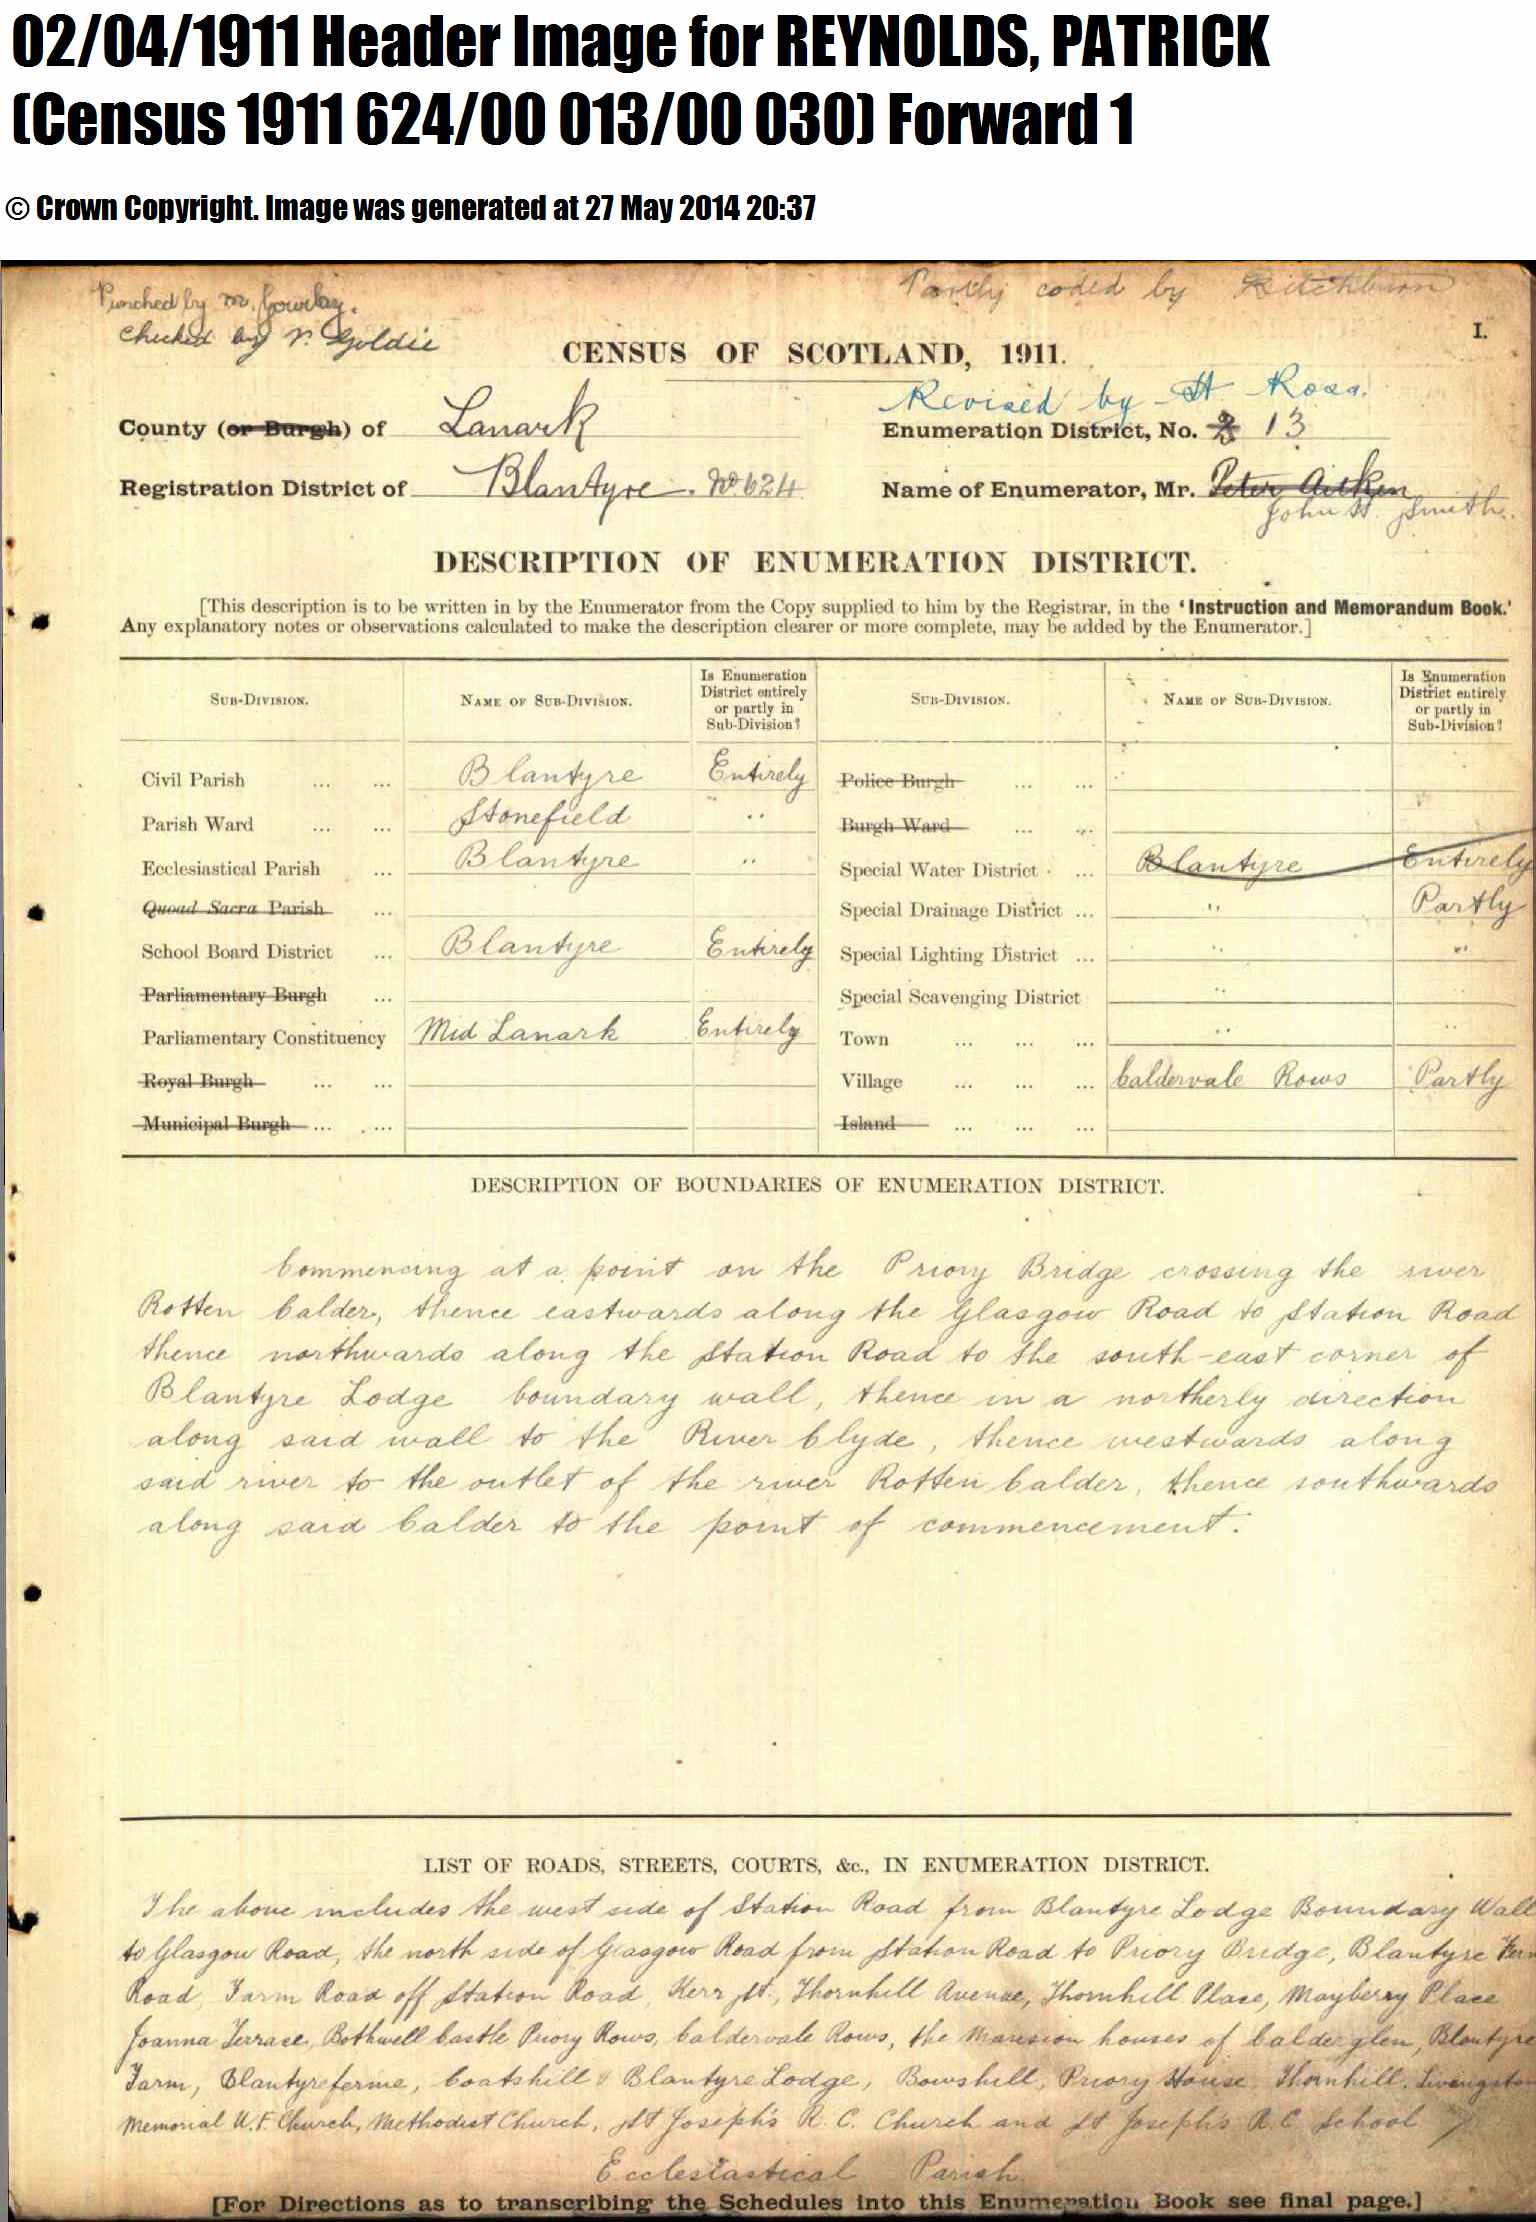 02/04/1911 Header Image for REYNOLDS, PATRICK
(Census 1911 624/00 013/00 030) Forward 1
© Crown Copyright. Image was generated at 27 May 2014 20:37
Partly coded by
Punched by M. Gourlay.
Checked by Goldie
I.
CENSUS OF SCOTLAND, 1911.
Revised by H Ross.
County (or Burgh) of Lanark
Enumeration District, No. 13
Registration District of Blantyre. No. 624
Name of Enumerator, Mr. Peter Aitken
John H. Smith.
DESCRIPTION OF ENUMERATION DISTRICT.
[This description is to be written in by the Enumerator from the Copy supplied to him by the Registrar, in the 'Instruction and Memorandum Book.'
Any explanatory notes or observations calculated to make the description clearer or more complete, may be added by the Enumerator.]
SUB-DIVISION. NAME OF SUB-DIVISION. Is Enumeration District entirely or partly in Sub-Division? SUB-DIVISION. NAME OF SUB-DIVISION. Is Enumeration District entirely or partly in Sub-Division?
Civil Parish ... ... Blantyre Entirely Police Burgh ... ...
Parish Ward ... ... Stonefield " Burgh Ward ... ...
Ecclesiastical Parish ... Blantyre " Special Water District ... Blantyre Entirely
Quoad Sacra Parish ... Special Drainage District ... " Partly
School Board District ... Blantyre Entirely Special Lighting District ... " "
Parliamentary Burgh ... Special Scavenging District " "
Parliamentary Constituency Mid Lanark Entirely Town ... ... ... " "
Royal Burgh ... ... Village ... ... ... Caldervale Rows Partly
Municipal Burgh ... ... Island ... ... ...
DESCRIPTION OF BOUNDARIES OF ENUMERATION DISTRICT.
Commencing at a point on the Priory Bridge crossing the river
Rotten Calder, thence eastwards along the Glasgow Road to Station Road
thence northwards along the Station Road to the south-east corner of
Blantyre Lodge boundary wall, thence in a northerly direction
along said wall to the River Clyde, thence westwards along
said river to the outlet of the river Rotten Calder, thence southwards
along said Calder to the point of commencement.
LIST OF ROADS, STREETS, COURTS, &c., IN ENUMERATION DISTRICT.
The above includes the west side of Station Road from Blantyre Lodge Boundary Wall
to Glasgow Road, the north side of Glasgow Road from Station Road to Priory Bridge, Blantyre
Road, Farm Road off Station Road, Kerr St., Thornhill Avenue, Thornhill Place, Mayberry Place
Joanna Terrace, Bothwell Castle Priory Rows, Caldervale Rows, the Mansion houses of Calderglen, Blantyre
Farm, Blantyreferme, Coatshill & Blantyre Lodge, Bowshill, Priory House Thornhill. Livingstone
Memorial U.F. Church, Methodist Church, St Joseph's R. C. Church and St Joseph's R.C. School
Ecclesiastical Parish
[For Directions as to transcribing the Schedules into this Enumeration Book see final page.]